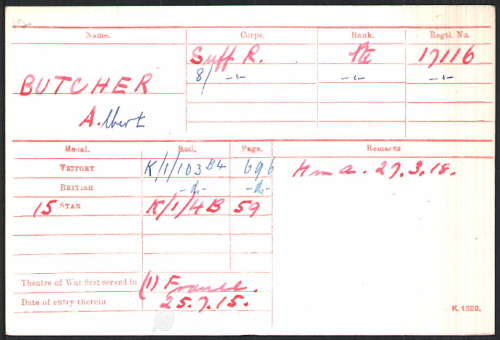 Name. Corps. Rank. Regtl. No.
Suff R. Pte 17116
BUTCHER 8/ -"- -"- -"-
Albert
Medal. Roll. Page. Remarks
VICTORY K/1/103 B4 696
BRITISH -do- -do-
15 STAR K/1/4B 59
27.3.18.
Theatre of War first served in (1) France.
Date of entry therein 25.7.15.
K. 1380.